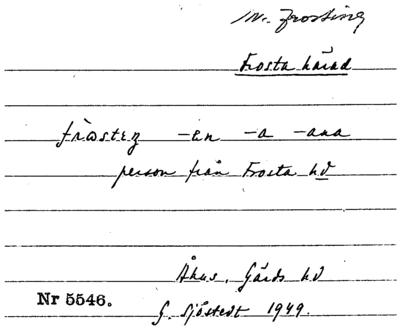 m. frosting
Frosta härad
fràstiŋ -en -a -ana
person från Frosta hd
Åhus, Gärds hd
Nr 5546.
G. Sjöstedt 1949.